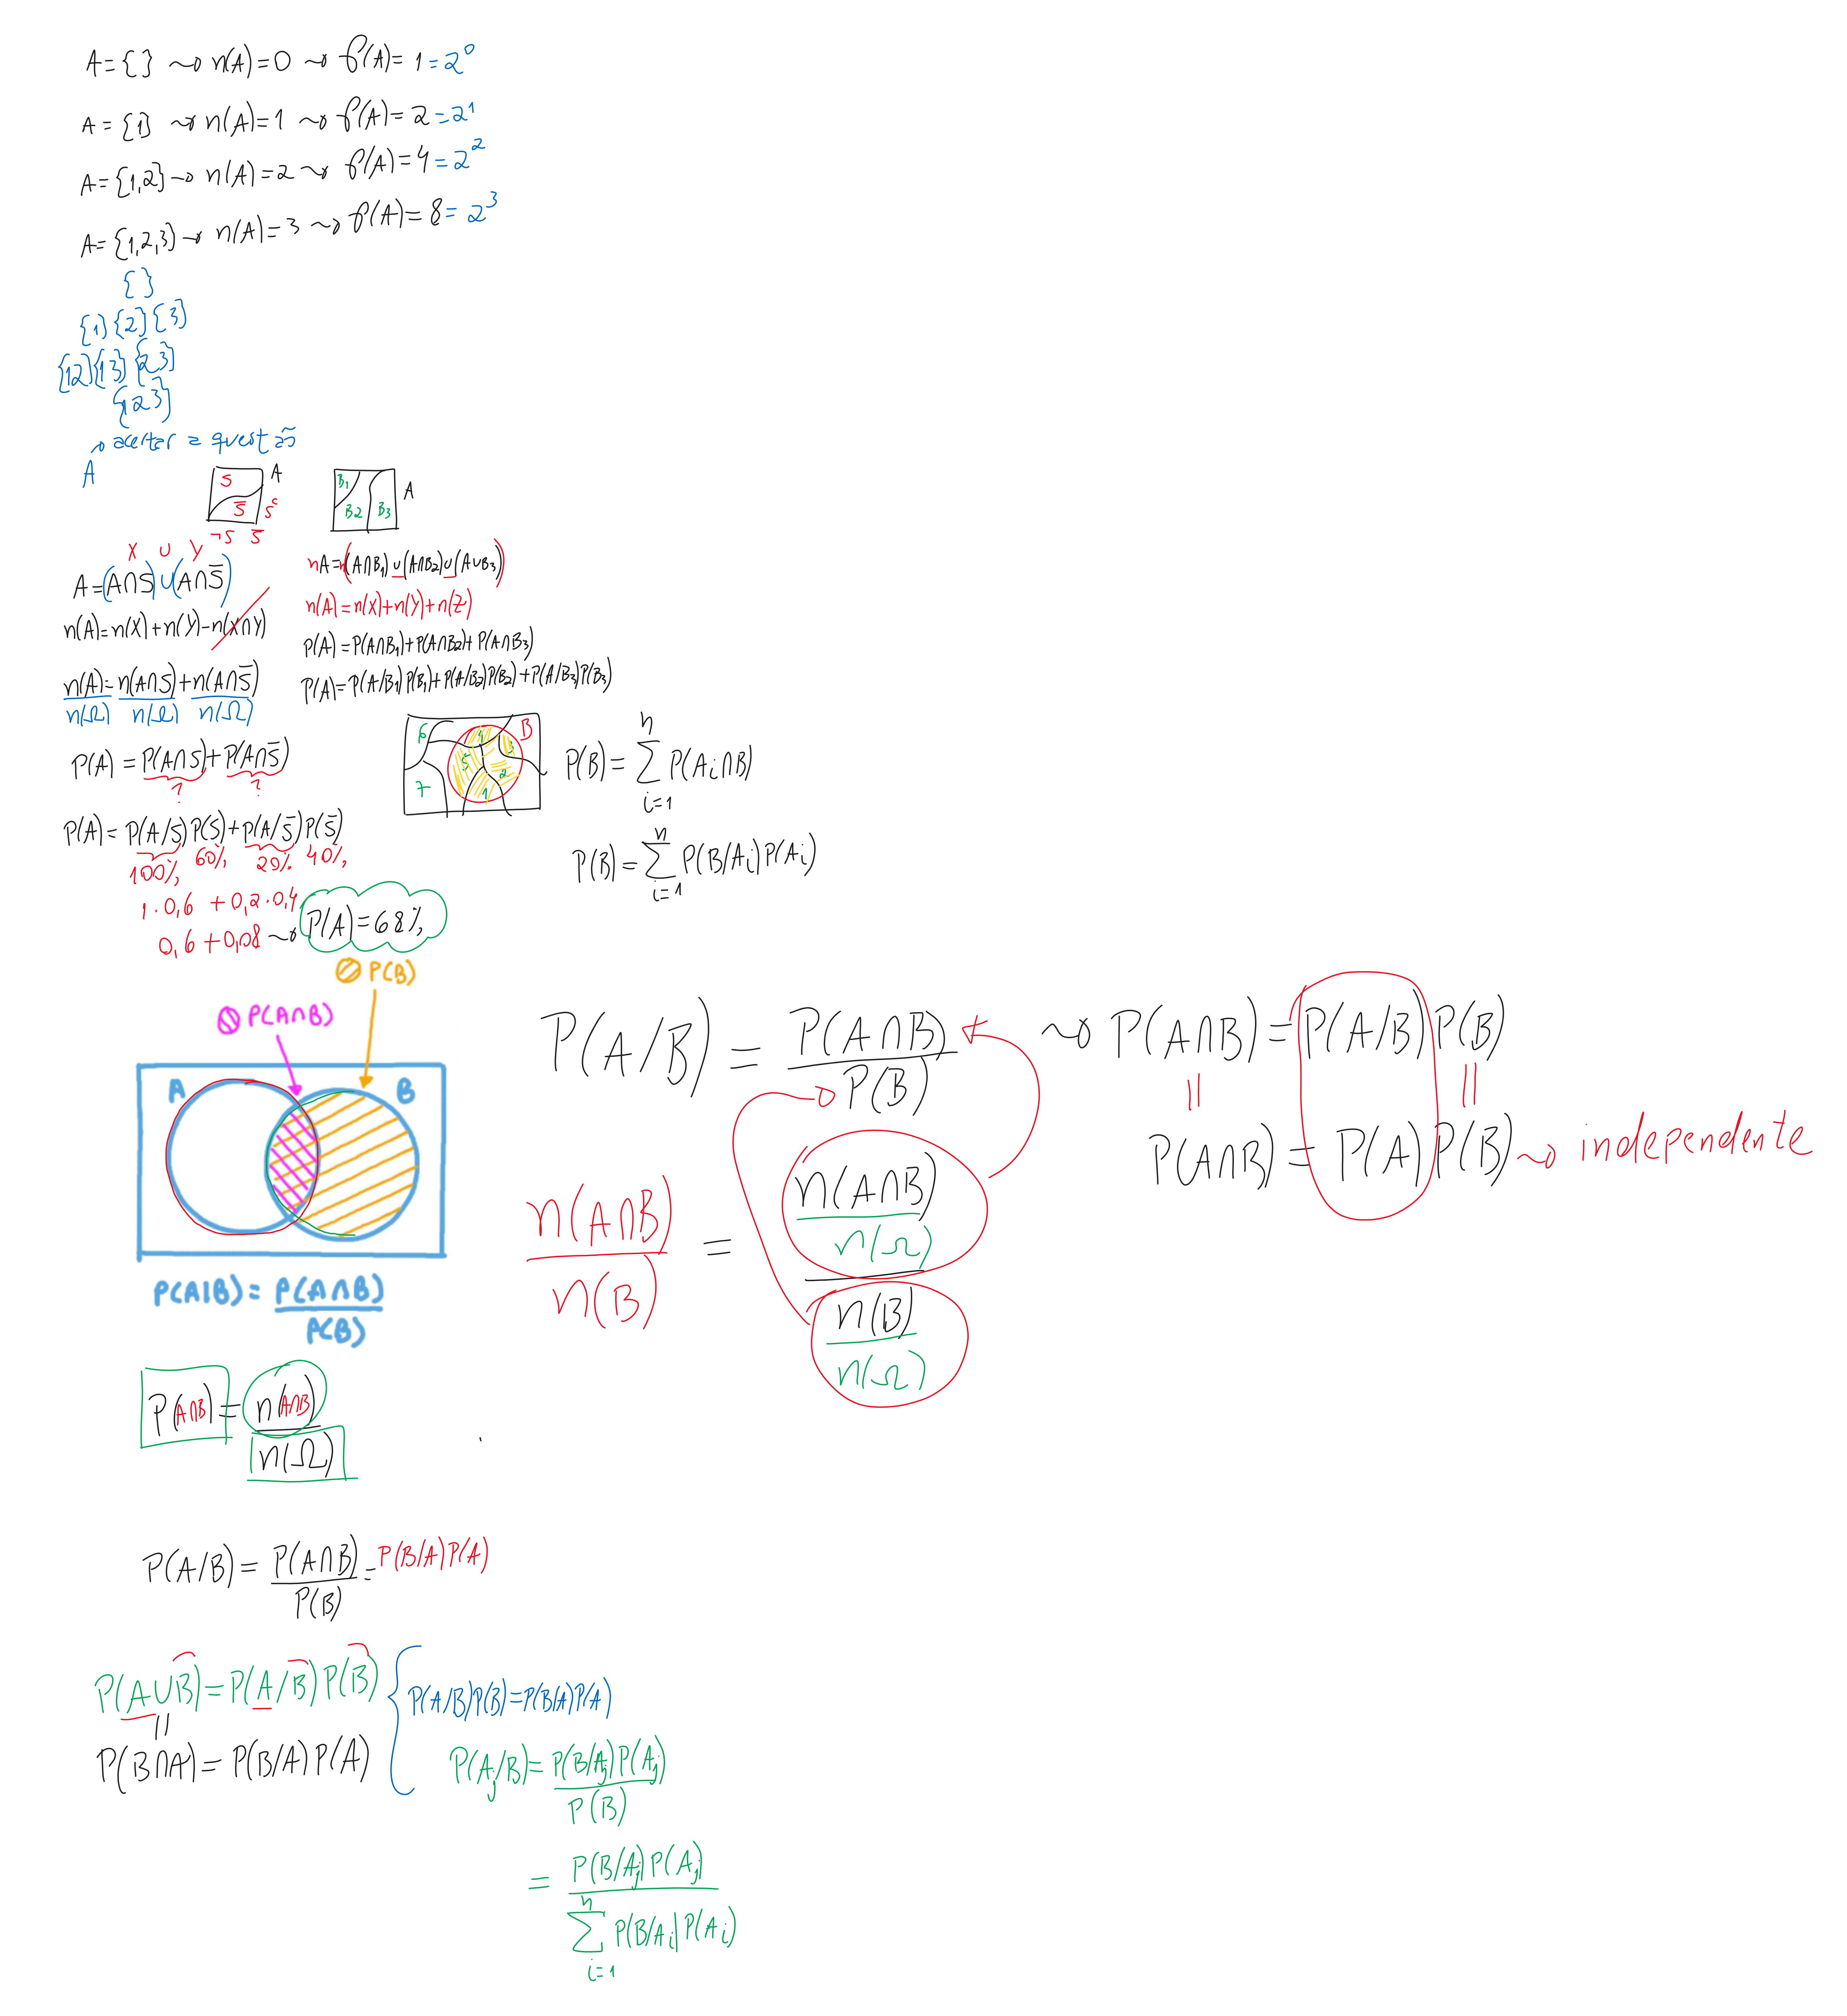 A={ } ⇝ n(A)=0 ⇝ ℘(A)=1=2⁰
A={1} ⇝ n(A)=1 ⇝ ℘(A)=2=2¹
A={1,2} ⇝ n(A)=2 ⇝ ℘(A)=4=2²
A={1,2,3} ⇝ n(A)=3 ⇝ ℘(A)=8=2³
{ }
{1} {2} {3}
{12} {13} {23}
{123}
A ⇝ acertar a questão
S S̅ A Sᶜ
¬S S̅
B₁ B₂ B₃ A
X ∪ Y
A=(A∩S)∪(A∩S̅)
n(A)=n(X)+n(Y)-n(X∩Y)
n(A)=n(A∩S)+n(A∩S̅)
n(Ω) n(Ω) n(Ω)
P(A)=P(A∩S)+P(A∩S̅)
? ?
P(A)=P(A/S)P(S)+P(A/S̅)P(S̅)
100% 60% 20% 40%
1·0,6+0,2·0,4
0,6+0,08 ⇝ P(A)=68%
nA=n((A∩B₁)∪(A∩B₂)∪(A∪B₃))
n(A)=n(X)+n(Y)+n(Z)
P(A)=P(A∩B₁)+P(A∩B₂)+P(A∩B₃)
P(A)=P(A/B₁)P(B₁)+P(A/B₂)P(B₂)+P(A/B₃)P(B₃)
6 4 B
5 3
7 1 2
P(B)=∑ᵢ₌₁ⁿ P(Aᵢ∩B)
P(B)=∑ᵢ₌₁ⁿ P(B/Aᵢ)P(Aᵢ)
P(B)
P(A∩B)
A B
P(A|B)=P(A∩B)
P(B)
P(A/B)=P(A∩B) ⇝ P(A∩B)=P(A/B)P(B)
P(B)
= =
P(A∩B)=P(A)P(B) ⇝ independente
n(A∩B) = n(A∩B)
n(B) n(Ω)
n(B)
n(Ω)
P(A∩B)=n(A∩B)
n(Ω)
P(A/B)=P(A∩B)=P(B/A)P(A)
P(B)
P(A∪B)=P(A/B)P(B)
=
P(B∩A)=P(B/A)P(A)
{ P(A/B)P(B)=P(B/A)P(A)
P(Aⱼ/B)=P(B/Aⱼ)P(Aⱼ)
P(B)
= P(B/Aⱼ)P(Aⱼ)
∑ᵢ₌₁ⁿ P(B/Aᵢ|P(Aᵢ)